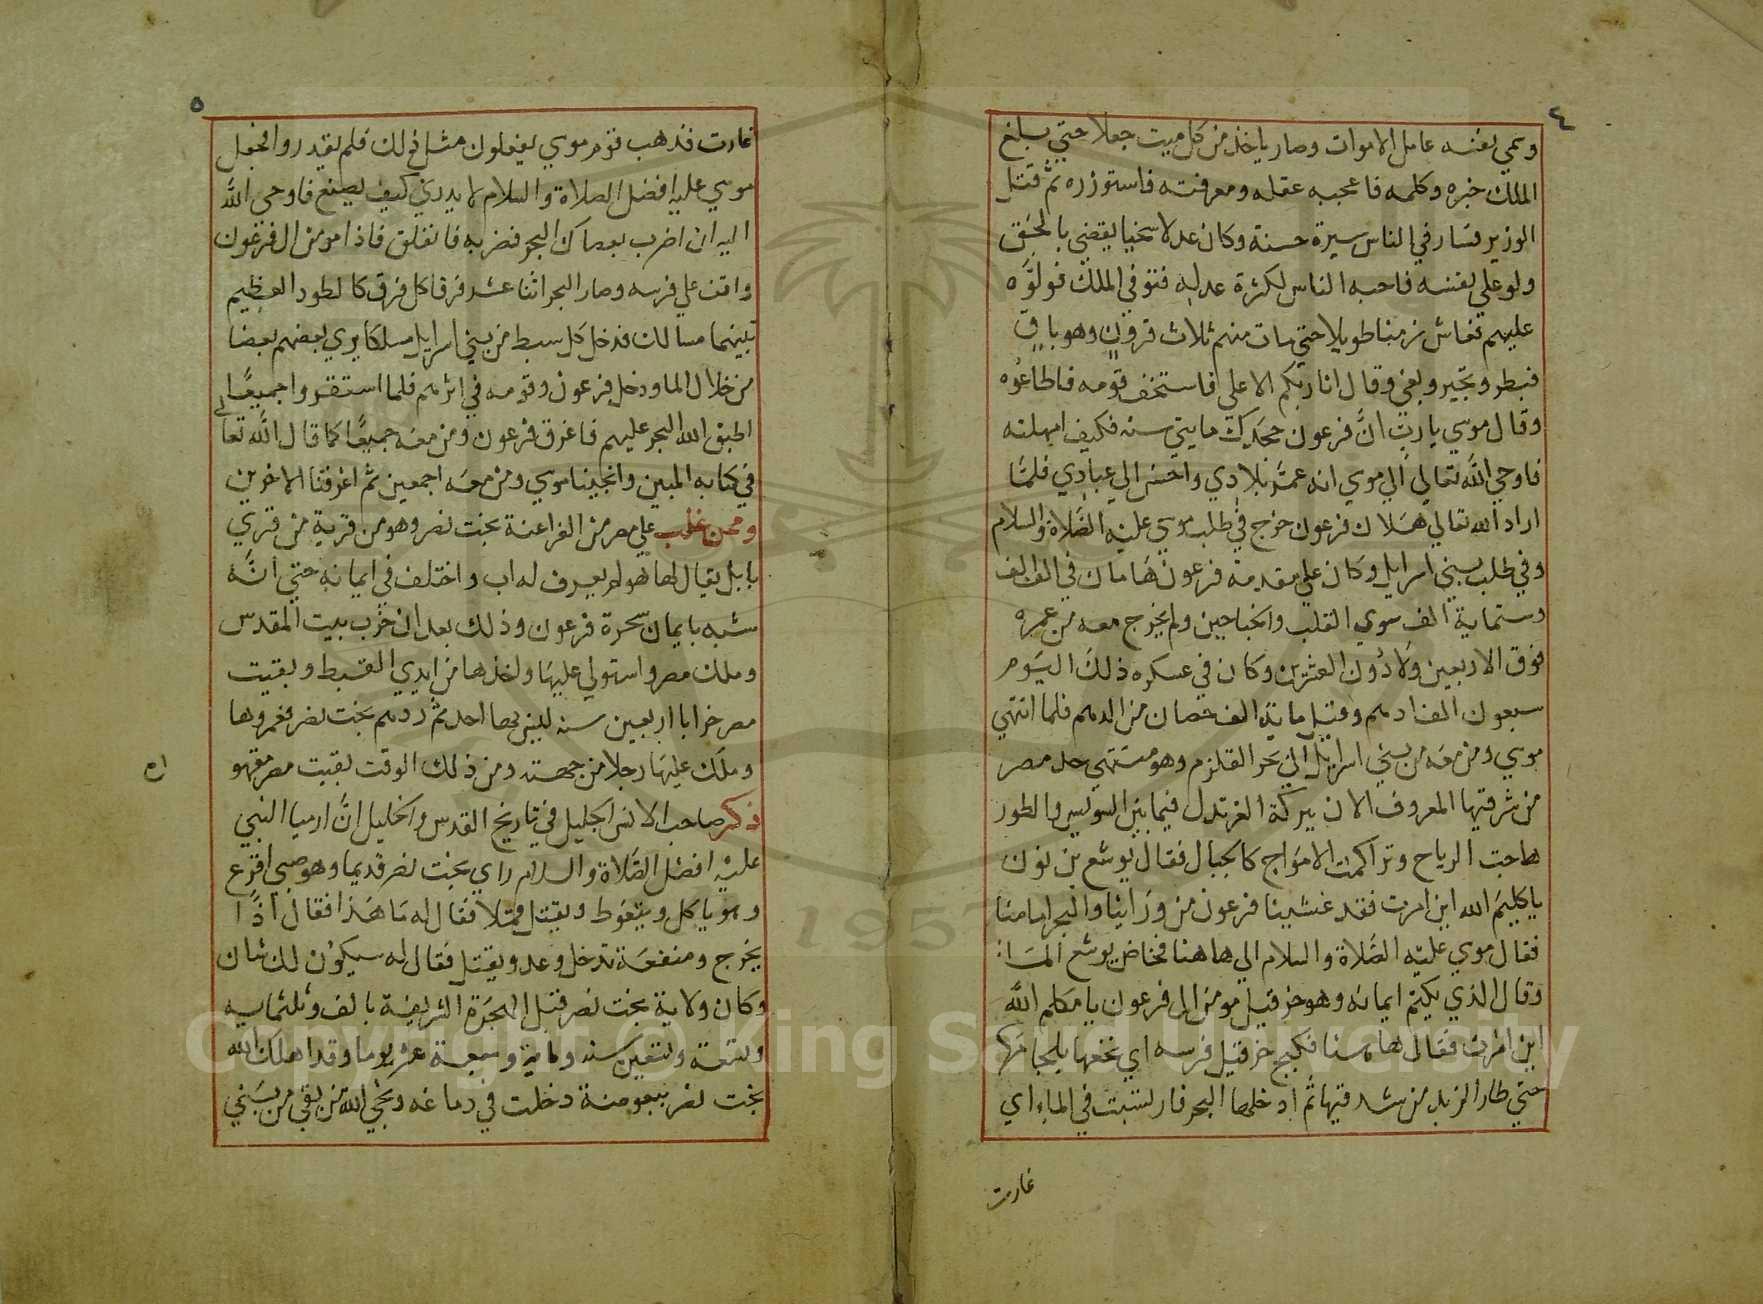 ٤
وسمي نفسه عامل الاموات وصار ياخذ من كل ميت جعلا حتي بلغ
الملك خبره وكلمه فاعجبه عقله ومعرفته فاستوزره ثم قتل
الوزير فسار في الناس سيرة حسنة وكان عدلا سخيا يقضي بالحق
ولو علي نفسه فاحبه الناس لكثرة عدله فتوفي الملك فولوه
عليهم فعاش زمنا طويلا حتي مات منهم ثلاث قرون وهو باق
فبطر وتجبر وبغي وقال انا ربكم الاعلي فاستخف قومه فاطاعوه
وقال موسي يا رب ان فرعون جحدك مايتي سنه فكيف امهلته
فاوحي الله تعالي الي موسي انه عمر بلادي واحسن الي عبادي فلما
اراد الله تعالي هلاك فرعون خرج في طلب موسي عليه الصلاة والسلام
وفي طلب بني اسرايل وكان علي مقدمة فرعون هامان في الف الف
وستماية الف سوي القلب والجناحين ولم يخرج معه من عمره
فوق الاربعين ولا دون العشرين وكان في عسكره ذلك اليوم
سبعون الف ادهم وقيل ماية الف حصان من الدهم فلما انتهي
موسي ومن معه من بني اسرايل الي بحر القلزم وهو منتهي حد مصر
من شرقيها المعروف الان ببركة الغرندل فيما بين السويس والطور
هاجت الرياح وتراكمت الامواج كالجبال فقال يوشع بن نون
يا كليم الله اين امرت فقد غشينا فرعون من وراينا والبحر امامنا
فقال موسي عليه الصلاة والسلام الي هاهنا فخاض يوشع الماء
وقال الذي يكتم ايمانه وهو حزقيل مومن ال فرعون يا مكلم الله
اين امرت فقال هاهنا فكبح حزقيل فرسه اي نخعها بلجامها
حتي طار الزبد من شدقيها ثم ادخلها البحر فارتسبت في الماء اي
غارت
٥
غارت فذهب قوم موسي يفعلون مثل ذلك فلم يقدروا فجعل
موسي عليه افضل الصلاة والسلام لا يدري كيف يصنع فاوحي الله
اليه ان اضرب بعصاك البحر فضربه فانفلق فاذا مومن ال فرعون
واقف علي فرسه وصار البحر اثنا عشر فرقا كل فرق كالطود العظيم
بينهما مسالك فدخل كل سبط من بني اسرايل مسلكا يري بعضهم بعضا
من خلال الما ودخل فرعون وقومه في اثرهم فلما استقروا جميعا
اطبق الله البحر عليهم فاغرق فرعون ومن معه جميعا كما قال الله تعالي
في كتابه المبين وانجينا موسي ومن معه اجمعين ثم اغرقنا الاخرين
وممن غلب علي مصر من الفراعنة بخت نصر وهو من قرية من قري
بابل يقال لها هو لم يعرف له اب واختلف في ايمانه حتي انه
شبه بايمان سحرة فرعون وذلك بعد ان خرب بيت المقدس
وملك مصر واستولي عليها واخذها من ايدي القبط وبقيت
مصر خرابا اربعين سنه ليس بها احد ثم ردهم بخت نصر فعمروها
وملك عليها رجلا من جهته ومن ذلك الوقت بقيت مصر مقهو
اه
ذكر صاحب الانس الجليل في تاريخ القدس والخليل ان ارميا النبي
عليه افضل الصلاة والسلام راي بخت نصر قديما وهو صبي اقرع
وهو ياكل ويتغوط ويقتل قملا فقال له ما هذا فقال اذا
يخرج ومنفعة تدخل وعدو يقتل فقال له سيكون لك شان
وكان ولاية بخت نصر قبل الهجرة الشريفة بالف وثلثمايه
وتسعة وتسعين سنه وماية وسبعة عشر يوما وقد اهلك الله
بخت نصر ببعوضة دخلت في دماغه ونجي الله من بقي من بني
Copyright © King Saud University
1957